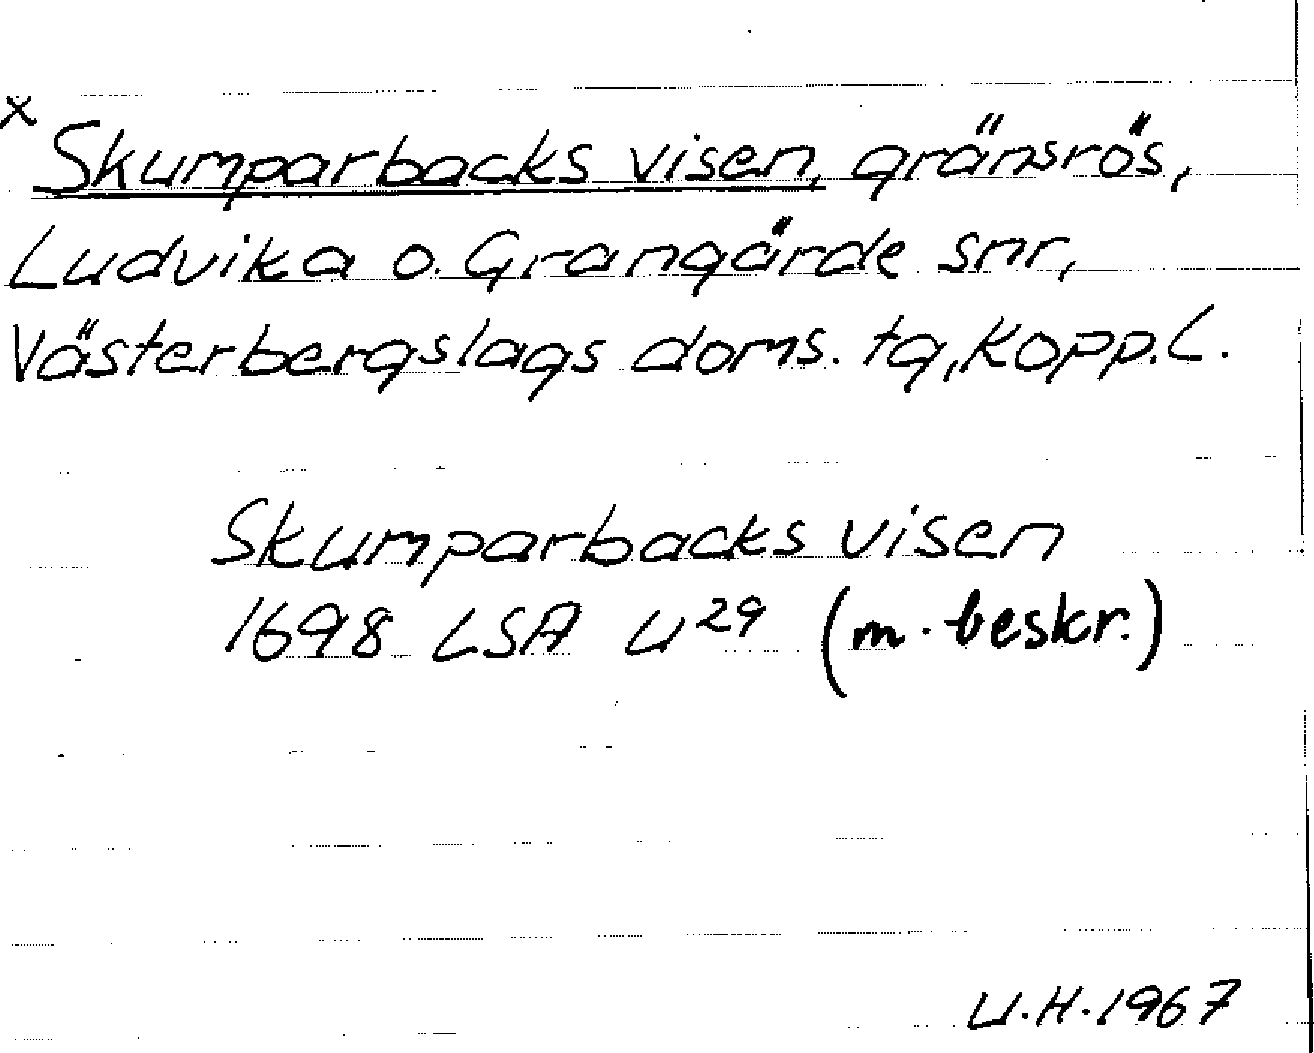 x Skumparbacks visen, gränsrös,
Ludvika o. Grangärde snr,
Västerbergslags doms. tg, Kopp. L.
Skumparbacks visen
1698 LSA U29 (m. beskr.)
U.H. 1967